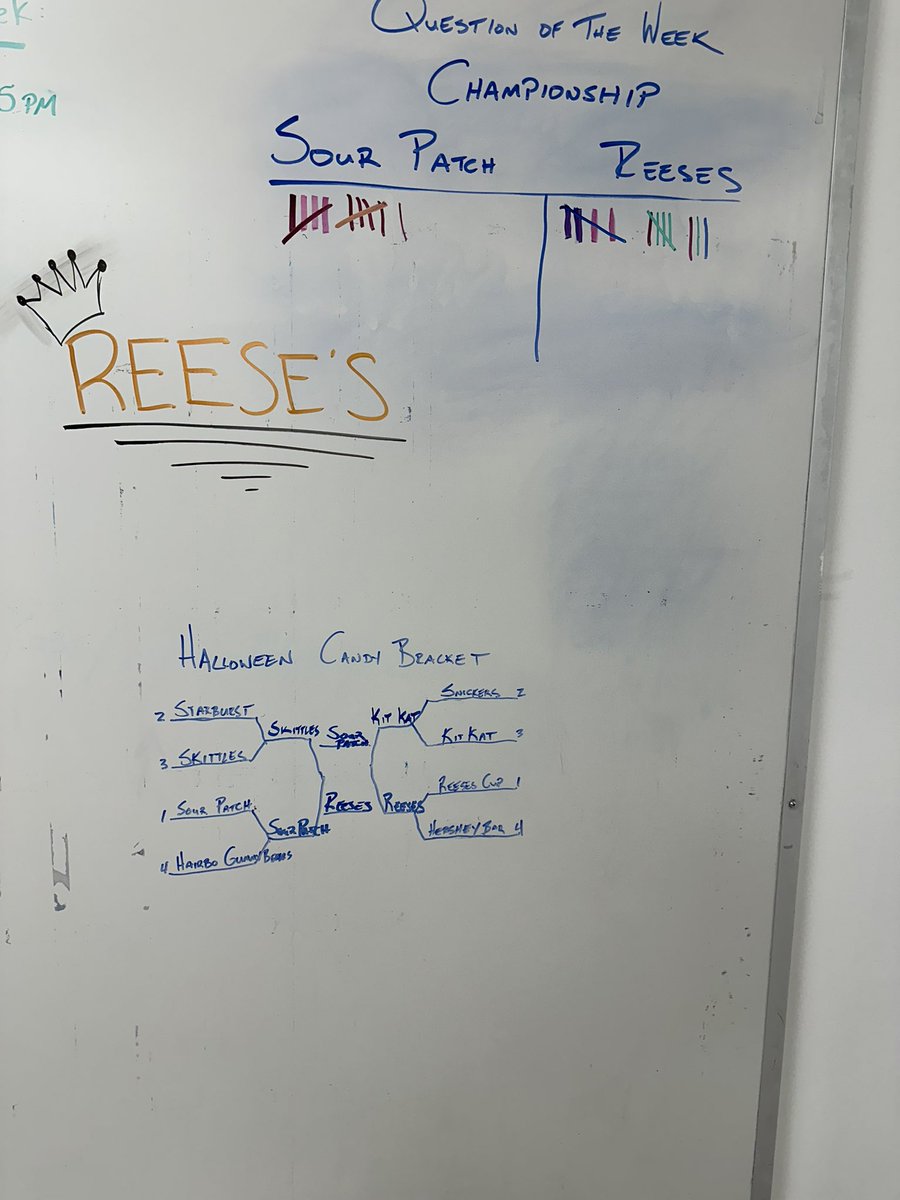 ek:
5 PM
QUESTION OF THE WEEK
CHAMPIONSHIP
SOUR PATCH REESES
REESE'S
HALLOWEEN CANDY BRACKET
2 STARBURST
3 SKITTLES
1 SOUR PATCH
4 HAIRBO GUMMY BEARS
SKITTLES
SOUR PATCH
SOUR
PATCH
REESES
KIT KAT
REESES
SNICKERS 2
KIT KAT 3
REESES CUP 1
HERSHEY BAR 4